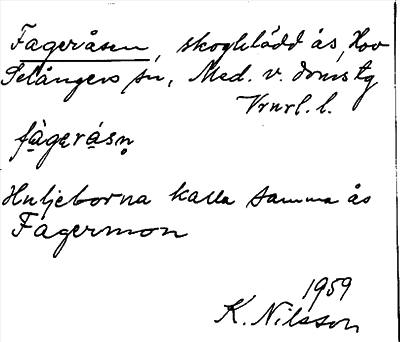 Fageråsen, skogklädd ås, Hov
Selångers sn, Med. v. doms tg
Vrnrl. l.
fàgeråsn̥
Huljeborna kalla samma ås
Fagermon
1959
K. Nilsson